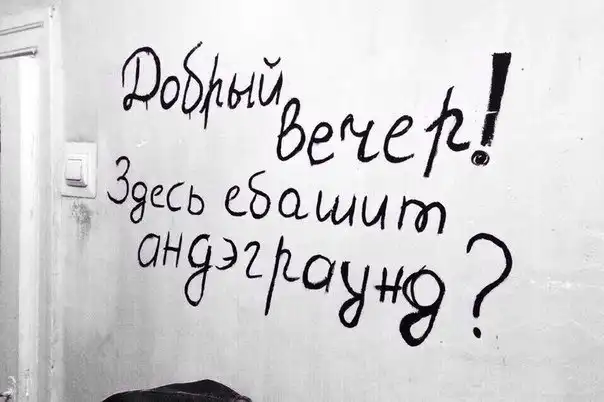 Добрый
вечер!
Здесь ебашит
андэграунд?